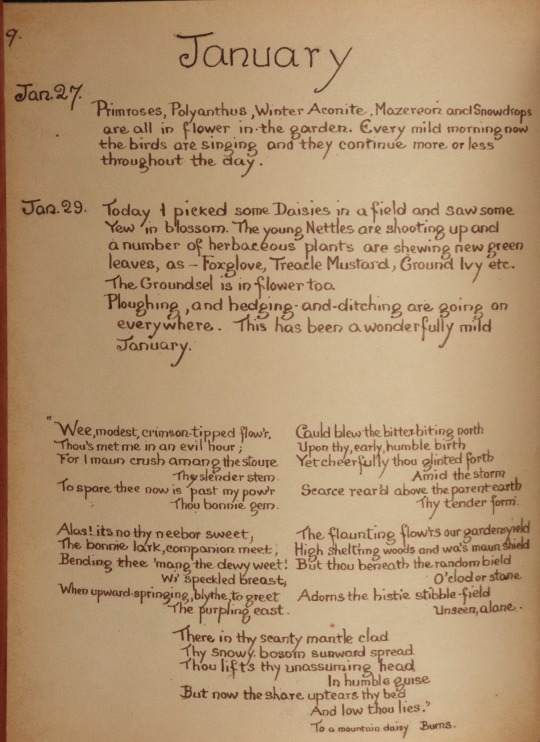 9.
January
Jan.27.
Primroses, Polyanthus, Winter Aconite, Mazereon and Snowdrops
are all in flower in the garden. Every mild morning now
the birds are singing and they continue more or less
throughout the day.
Jan.29. Today I picked some Daisies in a field and saw some
Yew in blossom. The young Nettles are shooting up and
a number of herbaceous plants are shewing new green
leaves, as – Foxglove, Treacle Mustard, Ground Ivy etc.
The Groundsel is in flower too.
Ploughing, and hedging-and-ditching are going on
everywhere. This has been a wonderfully mild
January.
"Wee, modest, crimson-tipped flow'r,
Thou's met me in an evil hour;
For I maun crush amang the stoure
Thy slender stem.
To spare thee now is past my pow'r
Thou bonnie gem.
Alas! its no thy neebor sweet,
The bonnie lark, companion meet;
Bending thee 'mang the dewy weet!
Wi' speckled breast,
When upward-springing, blythe, to greet
The purpling east.
Cauld blew the bitter-biting north
Upon thy, early, humble birth
Yet cheerfully thou glinted forth
Amid the storm
Scarce rear'd above the parent earth
Thy tender form.
The flaunting flow'rs our gardens yield
High shelting woods and wa's maun shield
But thou beneath the random bield
O'clod or stane
Adorns the histie stibble-field
Unseen, alane.
There in thy scanty mantle clad
Thy snowy bosom sunward spread
Thou lift's thy unassuming head
In humble guise
But now the share uptears thy bed
And low thou lies."
To a mountain daisy Burns.